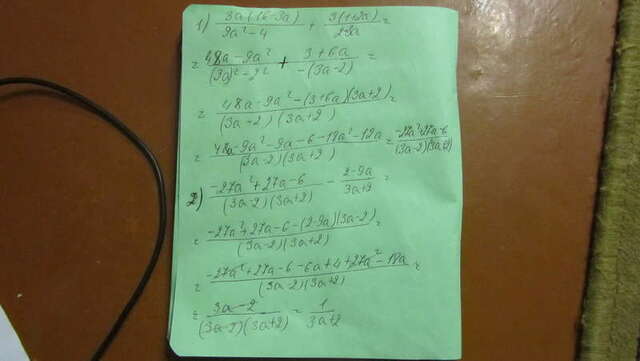 1) 3a(16-3a)/9a²-4 + 3(1+2a)/2-3a =
= 48a-9a²/(3a)²-2² + 3+6a/-(3a-2) =
= 48a-9a²-(3+6a)(3a+2)/(3a-2)(3a+2) =
= 48a-9a²-9a-6-18a²-12a/(3a-2)(3a+2) = -27a²+27a-6/(3a-2)(3a+2)
2) -27a²+27a-6/(3a-2)(3a+2) - 2-9a/3a+2 =
= -27a²+27a-6-(2-9a)(3a-2)/(3a-2)(3a+2) =
= -27a²+27a-6-6a+4+27a²-18a/(3a-2)(3a+2) =
= 3a-2/(3a-2)(3a+2) = 1/3a+2